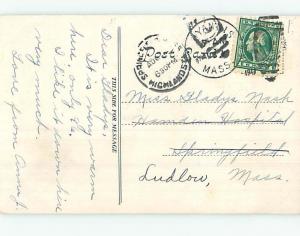 Dear Gladys,
It is very warm
here only Ga.
I like it down here
very much.
Love from Anna J.
THIS SIDE FOR MESSAGE
Post Card
HIGHLANDS
MASS.
Miss Gladys Mack
Hampden Hospital
Springfield
Ludlow, Mass.